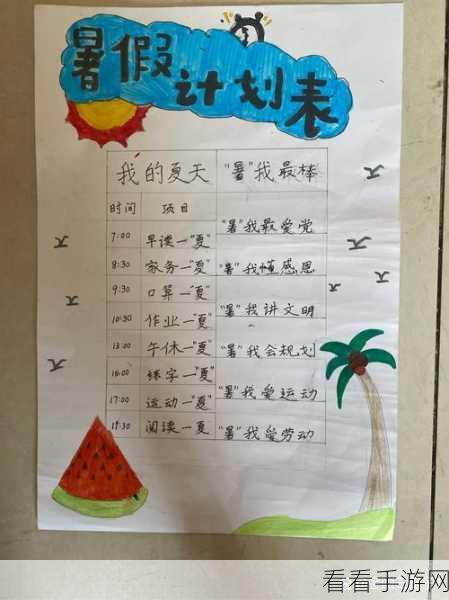 暑假计划表
我的夏天 "暑"我最棒
时间 项目
"暑"我最爱党
7:00 早读一"夏"
8:30 家务一"夏" "暑"我懂感恩
9:30 口算一"夏"
"暑"我讲文明
10:30 作业一"夏"
13:00 午休一"夏" "暑"我会规划
16:00 练字一"夏"
"暑"我爱运动
17:00 运动一"夏"
19:30 阅读一夏 "暑"我爱劳动
看看手游网